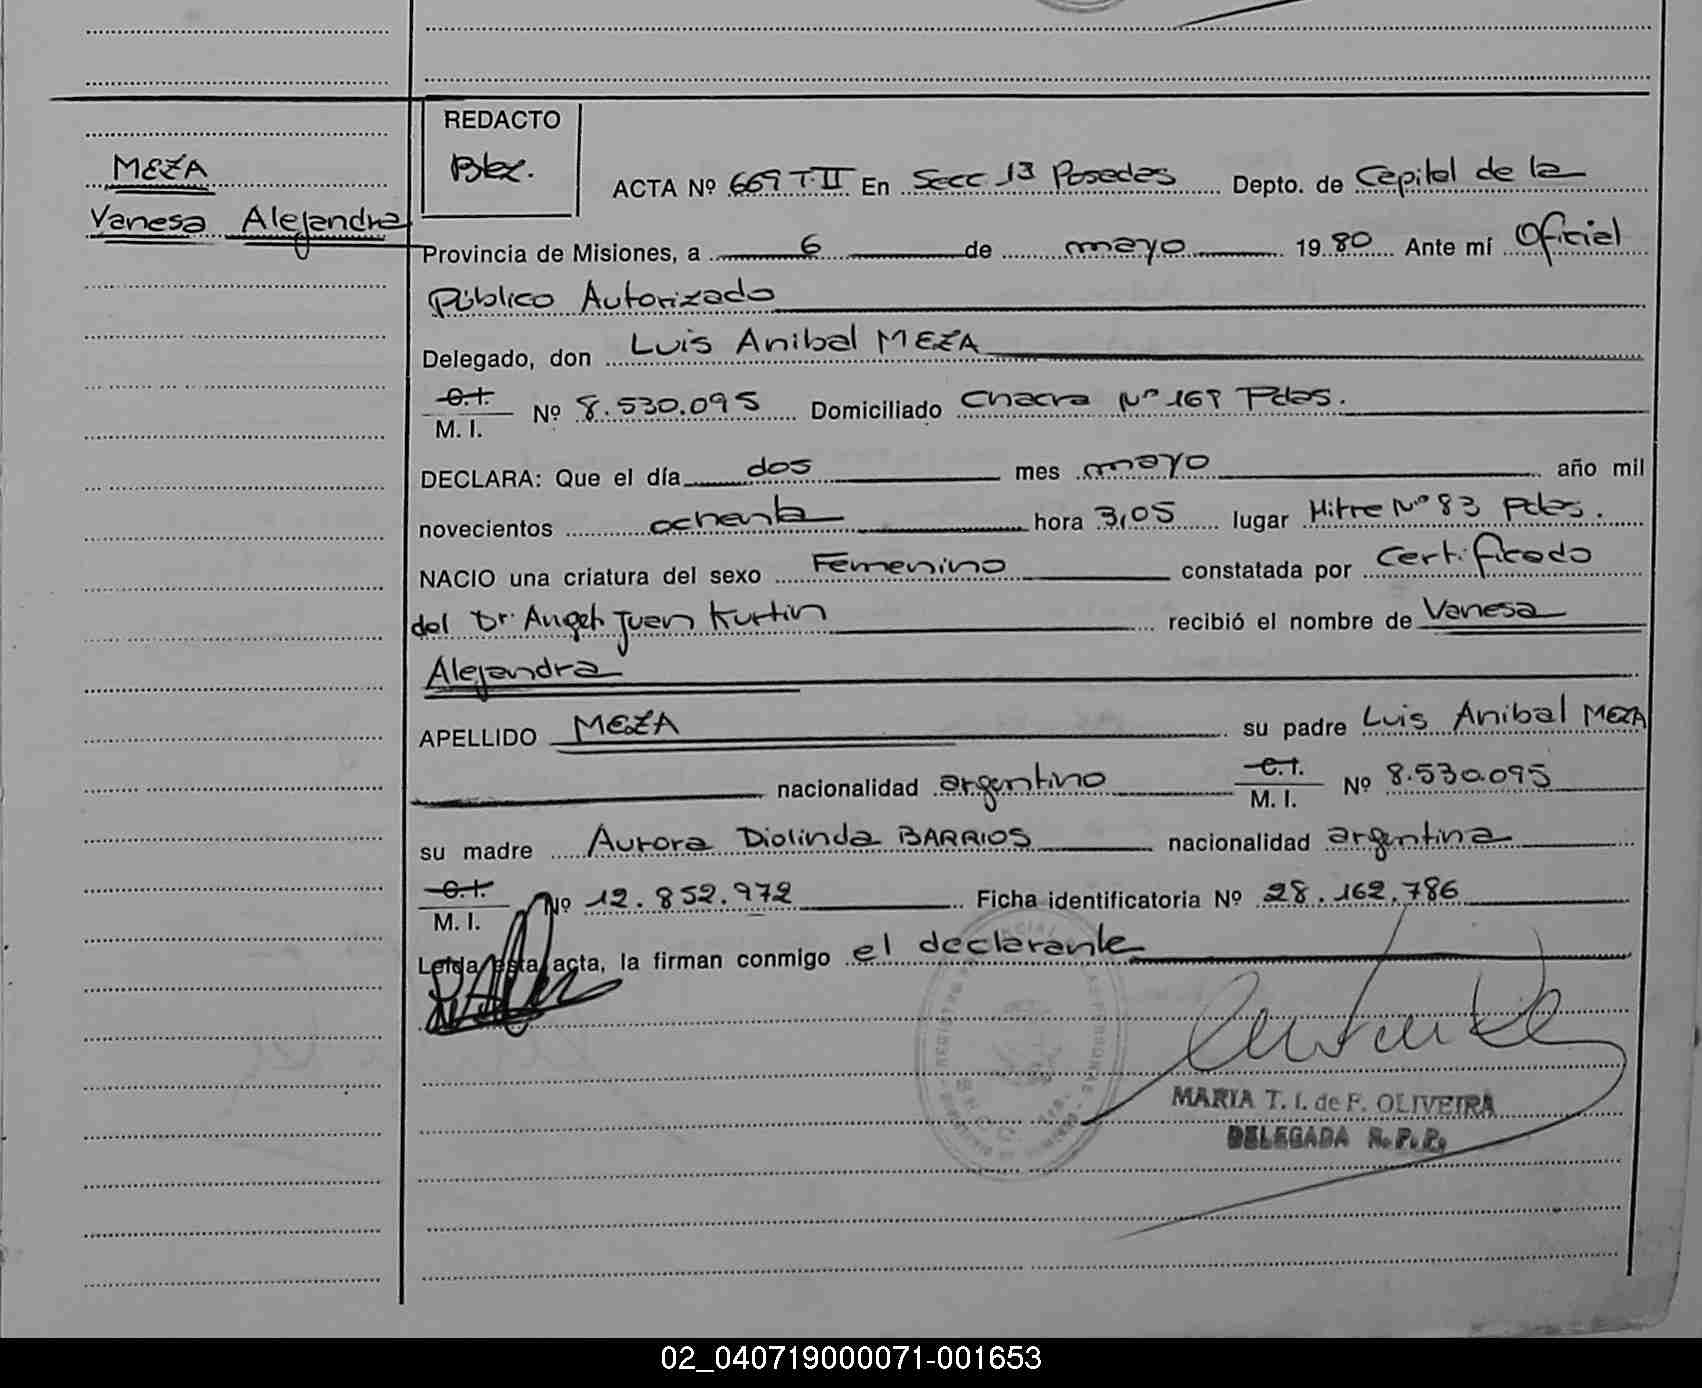 REDACTO
MEZA
Vanesa Alejandra
ACTA Nº 669 T II En Secc 13 Posadas Depto. de Capital de la
Provincia de Misiones, a 6 de mayo 1980 Ante mí Oficial
Público Autorizado
Delegado, don Luis Anibal MEZA
C.I.
M. I. Nº 8.530.095 Domiciliado Chacra Nº 169 Pdas.
DECLARA: Que el día dos mes mayo año mil
novecientos ochenta hora 3,05 lugar Mitre Nº 83 Pdas.
NACIO una criatura del sexo Femenino constatada por Certificado
del Dr. Angel Juan Kurtin recibió el nombre de Vanesa
Alejandra
APELLIDO MEZA su padre Luis Anibal MEZA
nacionalidad argentino C.I. M. I. Nº 8.530.095
su madre Aurora Diolinda BARRIOS nacionalidad argentina
C.I.
M. I. Nº 12.852.972 Ficha identificatoria Nº 28.162.786
Leída esta acta, la firman conmigo el declarante
MARIA T. I. de F. OLIVEIRA
DELEGADA R.P.P.
02_040719000071-001653